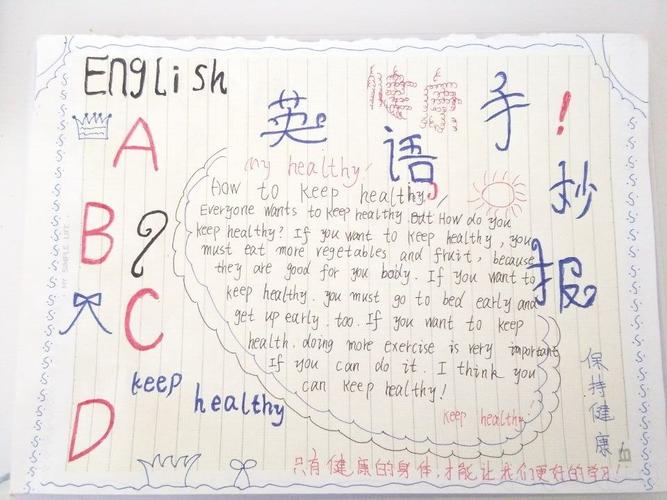 English
英语手抄报!
健康
A
B
C
D
my healthy!
How to keep healthy.
Everyone wants to keep healthy but How do you
keep healthy? If you want to keep healthy, you
must eat more vegetables and fruit, because
they are good for you body. If you want to
keep healthy. you must go to bed early and
get up early. too. If you want to keep
health. doing more exercise is very important
If you can do it. I think you
can keep healthy!
keep healthy
keep healthy
保持健康
只有健康的身体,才能让我们更好的学习!
MY SIMPLE LIFE